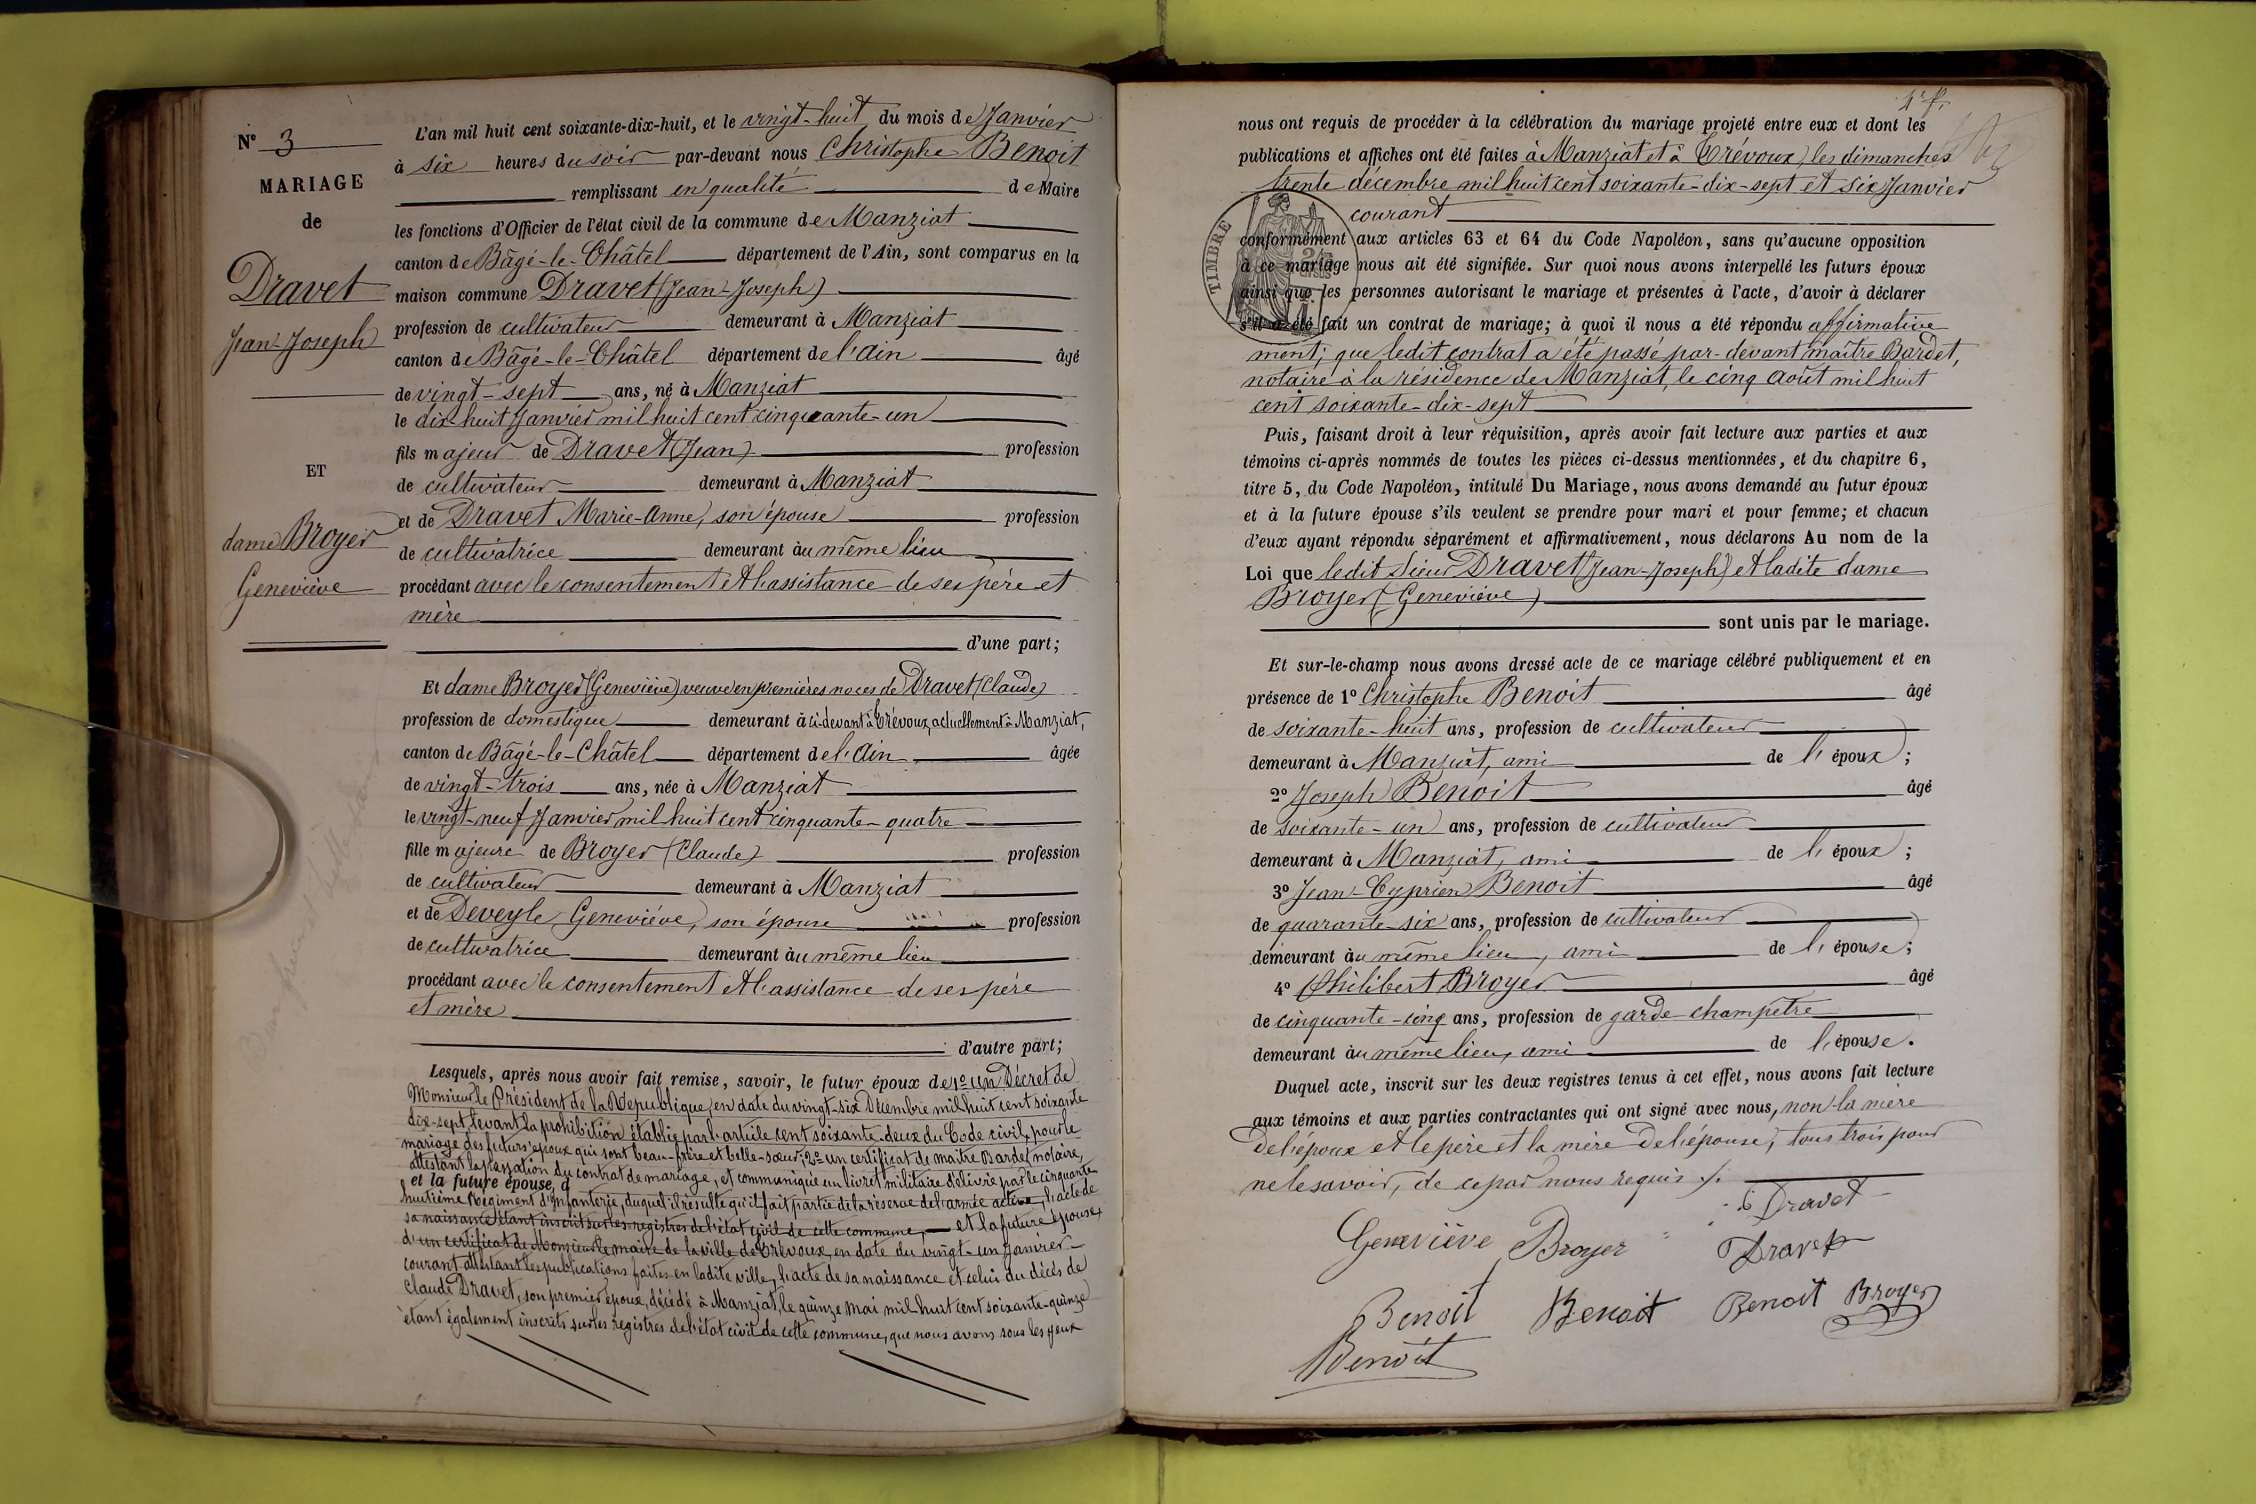 N° 3
MARIAGE
de
Dravet
Jean-Joseph
ET
dame Broyer
Geneviève
L'an mil huit cent soixante-dix-huit, et le vingt-huit du mois de Janvier
à six heures du soir par-devant nous Christophe Benoit
remplissant en qualité de Maire
les fonctions d'Officier de l'état civil de la commune de Manziat
canton de Bâgé-le-Châtel département de l'Ain, sont comparus en la
maison commune Dravet (Jean-Joseph)
profession de cultivateur demeurant à Manziat
canton de Bâgé-le-Châtel département de l'Ain âgé
de vingt-sept ans, né à Manziat
le dix-huit Janvier mil huit cent cinquante-un
fils majeur de Dravet (Jean) profession
de cultivateur demeurant à Manziat
et de Dravet Marie-Anne, son épouse profession
de cultivatrice demeurant au même lieu
procédant avec le consentement et l'assistance de ses père et
mère
d'une part;
Et dame Broyer (Geneviève) veuve en premières noces de Dravet (Claude)
profession de domestique demeurant à ci-devant à Trévoux, actuellement à Manziat,
canton de Bâgé-le-Châtel département de l'Ain âgée
de vingt-trois ans, née à Manziat
le vingt-neuf Janvier mil huit cent cinquante-quatre
fille majeure de Broyer (Claude) profession
de cultivateur demeurant à Manziat
et de Deveyle Geneviève, son épouse profession
de cultivatrice demeurant au même lieu
procédant avec le consentement et l'assistance de ses père
et mère
d'autre part;
Lesquels, après nous avoir fait remise, savoir, le futur époux de 1° un Décret de
Monsieur le Président de la République, en date du vingt-six Décembre mil huit cent soixante
dix-sept, levant la prohibition établie par l'article cent soixante-deux du Code civil, pour le
mariage des futurs époux qui sont beau-frère et belle-sœur; 2° un certificat de maître Bardet, notaire,
attestant la passation du contrat de mariage, et communiqué un livret militaire délivré par le cinquante
et la future épouse, d
huitième Régiment d'Infanterie, duquel il résulte qu'il fait partie de la réserve de l'armée active, l'acte de
sa naissance étant inscrit sur les registres de l'état civil de cette commune, et la future épouse,
d'un certificat de Monsieur le maire de la ville de Trévoux, en date du vingt-un Janvier
courant attestant les publications faites en ladite ville, l'acte de sa naissance et celui du décès de
Claude Dravet, son premier époux, décédé à Manziat, le quinze mai mil huit cent soixante-quinze
étant également inscrits sur les registres de l'état civil de cette commune, que nous avons sous les yeux
nous ont requis de procéder à la célébration du mariage projeté entre eux et dont les
publications et affiches ont été faites à Manziat et à Trévoux, les dimanches
trente décembre mil huit cent soixante-dix-sept et six Janvier
courant
TIMBRE
conformément aux articles 63 et 64 du Code Napoléon, sans qu'aucune opposition
à ce mariage nous ait été signifiée. Sur quoi nous avons interpellé les futurs époux
ainsi que les personnes autorisant le mariage et présentes à l'acte, d'avoir à déclarer
s'il a été fait un contrat de mariage; à quoi il nous a été répondu affirmative
ment; que ledit contrat a été passé par-devant maître Bardet,
notaire à la résidence de Manziat, le cinq août mil huit
cent soixante-dix-sept
Puis, faisant droit à leur réquisition, après avoir fait lecture aux parties et aux
témoins ci-après nommés de toutes les pièces ci-dessus mentionnées, et du chapitre 6,
titre 5, du Code Napoléon, intitulé Du Mariage, nous avons demandé au futur époux
et à la future épouse s'ils veulent se prendre pour mari et pour femme; et chacun
d'eux ayant répondu séparément et affirmativement, nous déclarons Au nom de la
Loi que ledit sieur Dravet (Jean-Joseph) et ladite dame
Broyer (Geneviève)
sont unis par le mariage.
Et sur-le-champ nous avons dressé acte de ce mariage célébré publiquement et en
présence de 1° Christophe Benoit âgé
de soixante-huit ans, profession de cultivateur
demeurant à Manziat, ami de l'époux;
2° Joseph Benoit âgé
de soixante-un ans, profession de cultivateur
demeurant à Manziat, ami de l'époux;
3° Jean-Cyprien Benoit âgé
de quarante-six ans, profession de cultivateur
demeurant au même lieu, ami de l'épouse;
4° Philibert Broyer âgé
de cinquante-cinq ans, profession de garde-champêtre
demeurant au même lieu, ami de l'épouse.
Duquel acte, inscrit sur les deux registres tenus à cet effet, nous avons fait lecture
aux témoins et aux parties contractantes qui ont signé avec nous, non la mère
de l'époux et le père et la mère de l'épouse, tous trois pour
ne le savoir, de ce par nous requis
Dravet
Geneviève Broyer Dravet
Benoit Benoit Benoit Broyer
Benoit